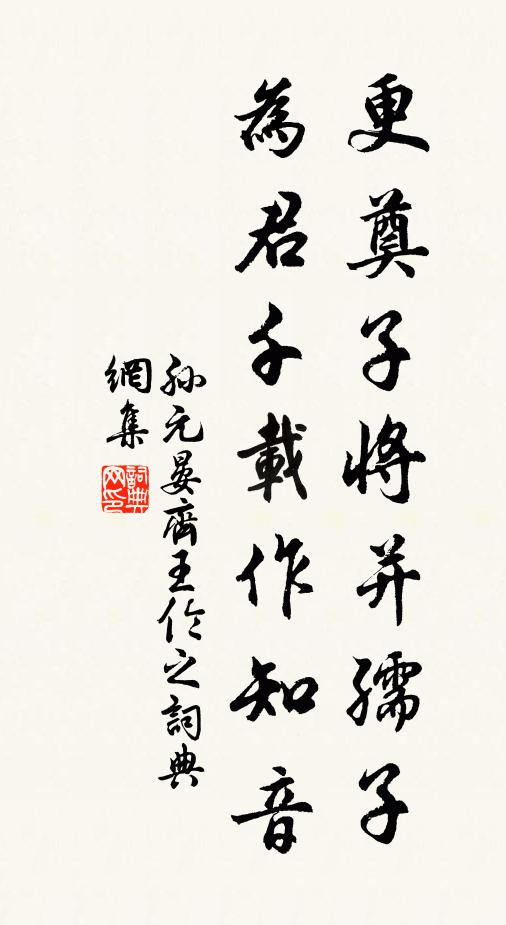 更奠子將并孺子
為君千載作知音
孫元晏齊王伦之詞典
網集
詞典網印